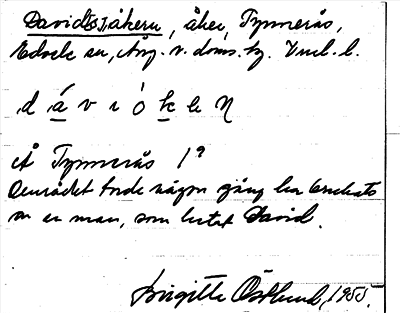 Davidsåkern, åker, Tynnerås,
sn, Ång. v. doms. by. Vml. l.
d á v ı ó k e n
Å Tynnerås 1?
Området torde någon gång ha brukats
av en man, som hetat David.
Birgitta Östlund, 1955.